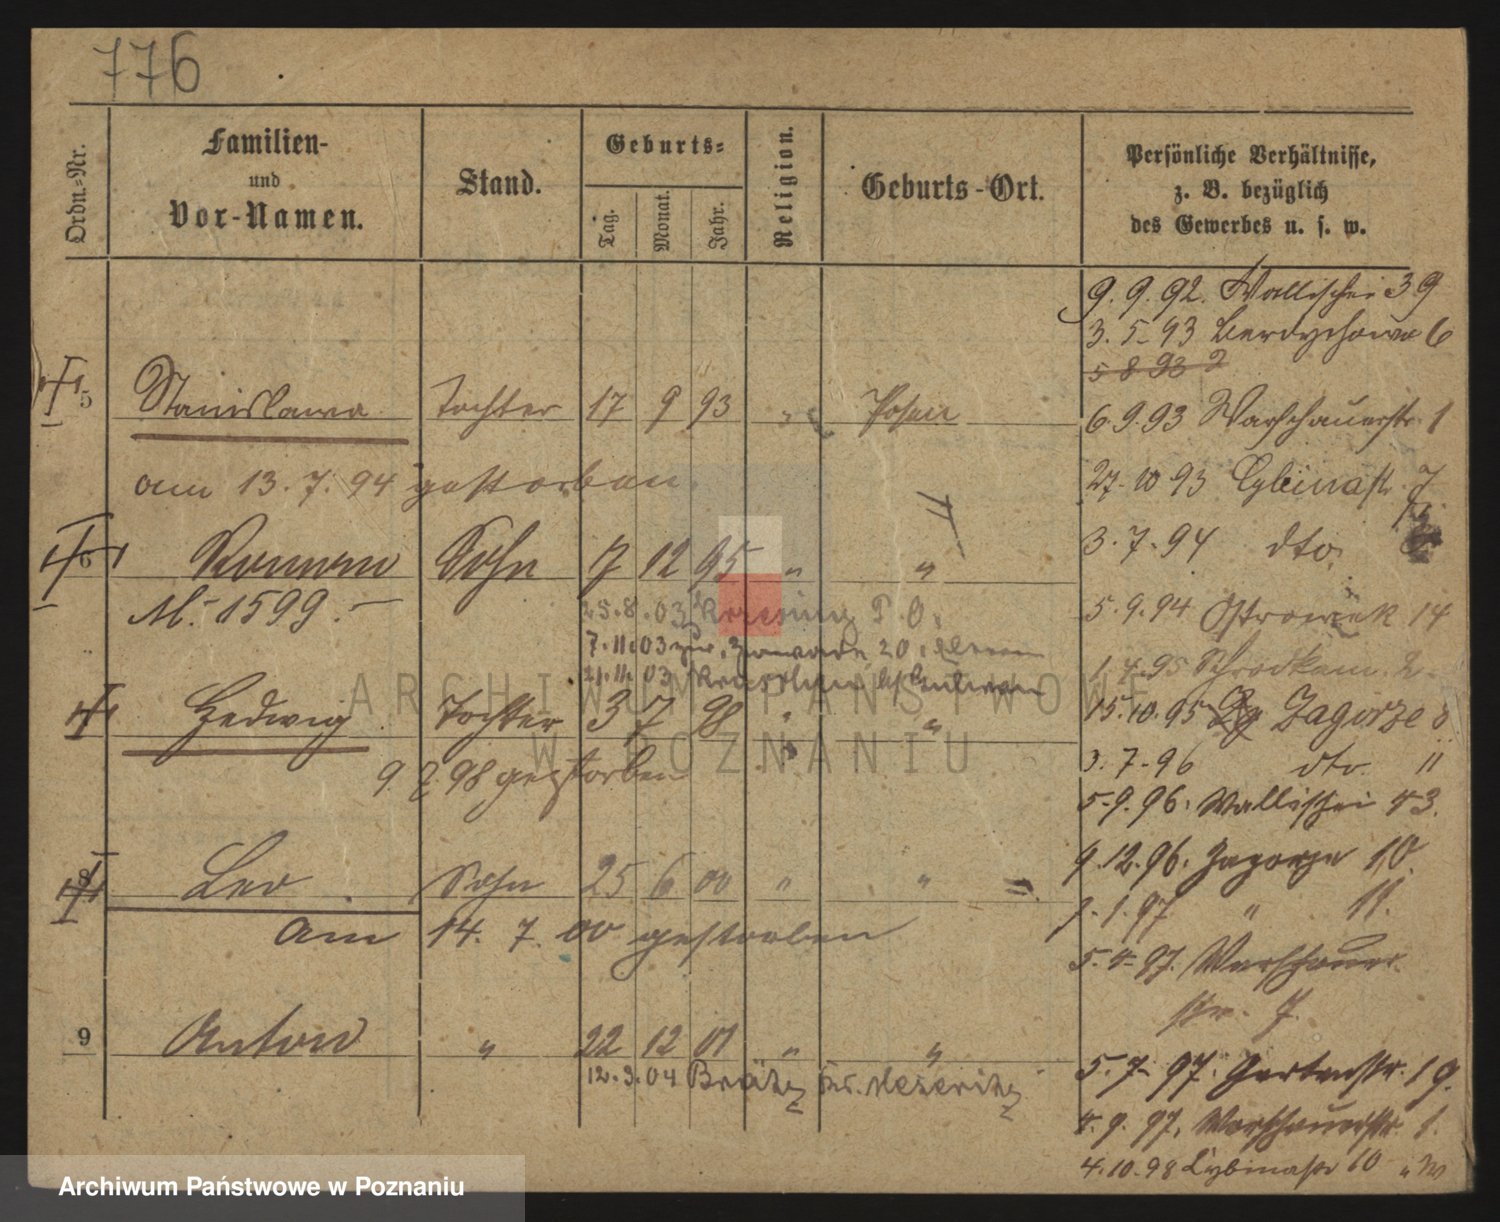 776
Ordn.-Nr.
Familien-
und
Vor-Namen.
Stand.
Geburts-
Tag.
Monat.
Jahr.
Religion.
Geburts-Ort.
Persönliche Verhältnisse,
z. B. bezüglich
des Gewerbes u. s. w.
9. 9. 92. Wallischei 39
3. 5. 93 Berdychowo 6
5 8 93 2
5 Stanislawa Tochter 17 9 93 " Posen
6. 9. 93 Warschauerstr. 1
am 13. 7. 94 gestorben.
27. 10 93 Cybinastr. 7
6 Roman Sohn 7 12 95 " "
3. 7. 94 dto.
M. 1599.
25. 8. 03 P. O.
5. 9. 94 Ostrowek 14
7. 11. 03 20.
21. 11. 03
1. 4. 95 Schrodkam. 2.
Hedwig Tochter 3 7 98 " "
15. 10. 95 Zagorze 8
9 98 gestorben
3. 7. 96 dto. 11
5. 9. 96. Wallischei 43.
8 Leo Sohn 25 6 00 " "
9. 12. 96. Zagorze 10.
1. 97 " 11.
am 14. 7. 00 gestorben
5. 4. 97. Warschauer
str. 7.
9 Anton " 22 12 01 " "
5. 7. 97. Gartenstr. 19.
12. 3. 04 Brätz Kr. Meseritz
4. 9. 97. Warschauerstr. 1.
4. 10. 98 Cybinastr 10
ARCHIWUM PAŃSTWOWE
W POZNANIU
Archiwum Państwowe w Poznaniu